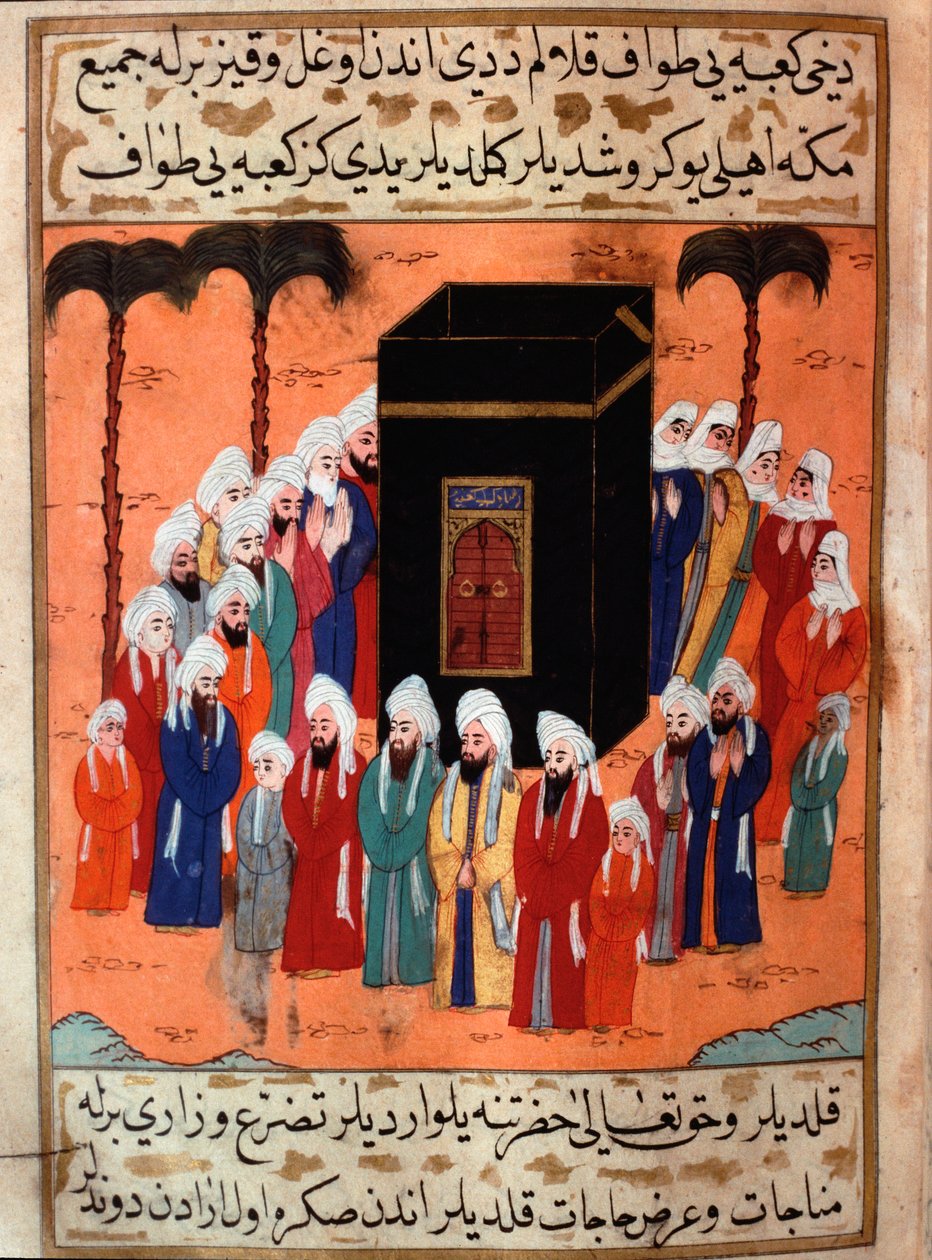 دخى كعبه يي طواف قلالم ددي اندن اوغل و قيز برله جميع
مكّه اهلى يوكروشديلر كلديلر يدي كز كعبه يي طواف
قلديلر و حق تعالىٰ حضرتنه يلوارديلر تضرّع و زاري برله
مناجات و عرض حاجات قلديلر اندن صكره اول ارادن دوندلر